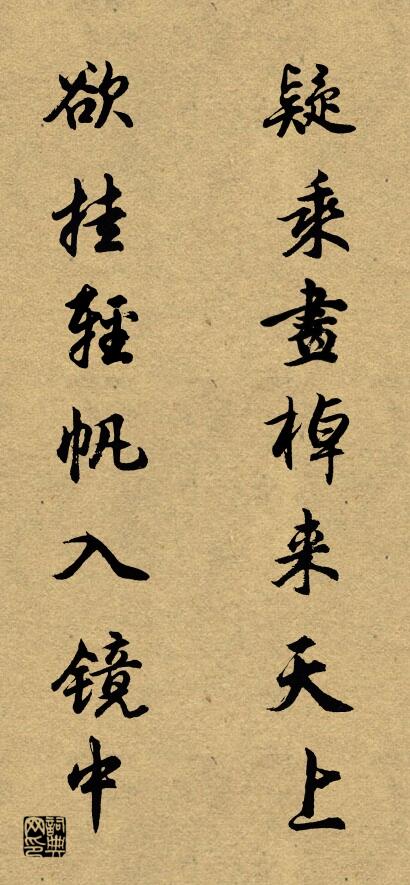 疑乘畫棹来天上
欲挂輕帆入鏡中
詞典网印